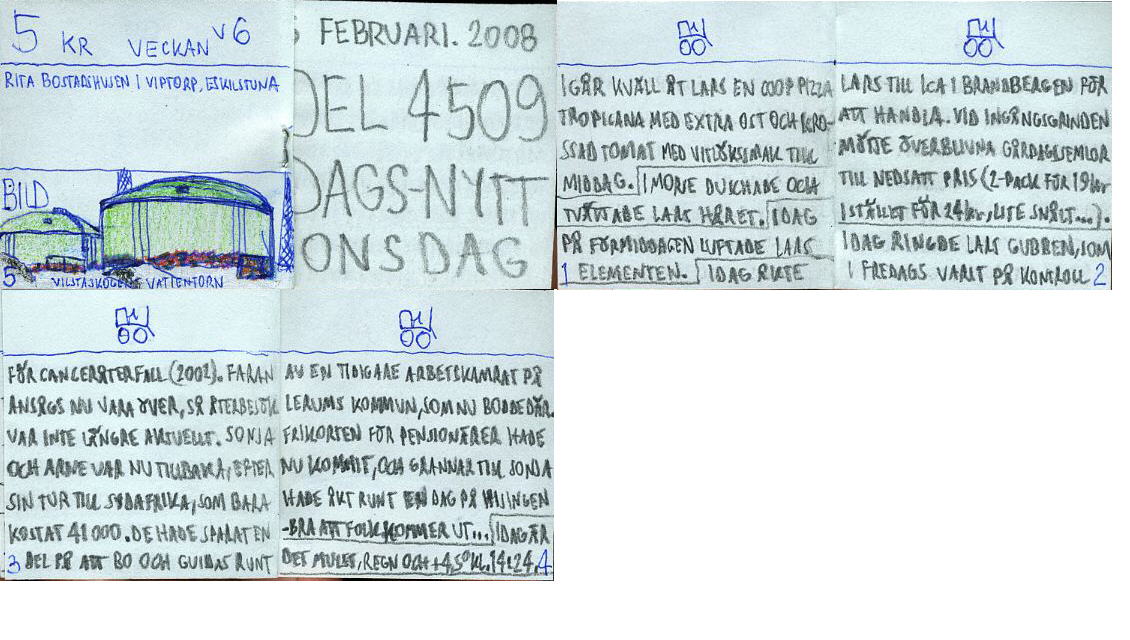 5 KR VECKAN V6
RITA BOSTADSHUSEN I VIPTORP, ESKILSTUNA
BILD
5 VILSTASKOGENS VATTENTORN
FEBRUARI. 2008
DEL 4509
DAGS-NYTT
ONSDAG
IGÅR KVÄLL ÅT LARS EN COOP PIZZA
TROPICANA MED EXTRA OST OCH KRO-
SSAD TOMAT MED VITLÖKSSMAK TILL
MIDDAG. I MORSE DUSCHADE OCH
TVÄTTADE LARS HÅRET. IDAG
PÅ FÖRMIDDAGEN LUFTADE LARS
1 ELEMENTEN. IDAG ÅKTE
LARS TILL ICA I BRANDBERGEN FÖR
ATT HANDLA. VID INGÅNGSGRINDEN
MÖTTE ÖVERBLIVNA GÅRDAGSSEMLOR
TILL NEDSATT PRIS (2-PACK FÖR 19 kr
ISTÄLLET FÖR 24 kr, LITE SNÅLT...).
IDAG RINGDE LARS GUBBEN, SOM
I FREDAGS VARIT PÅ KONTROLL 2
FÖR CANCERÅTERFALL (2002). FARAN
ANSÅGS NU VARA ÖVER, SÅ ÅTERBESÖK
VAR INTE LÄNGRE AKTUELLT. SONJA
OCH ARNE VAR NU TILLBAKA, EFTER
SIN TUR TILL SYDAFRIKA, SOM BARA
KOSTAT 41 000. DE HADE SPARAT EN
3 DEL PÅ ATT BO OCH GUIDAS RUNT
AV EN TIDIGARE ARBETSKAMRAT PÅ
LERUMS KOMMUN, SOM NU BODDE DÄR.
FRIKORTEN FÖR PENSIONÄRER HADE
NU KOMMIT, OCH GRANNAR TILL SONJA
HADE ÅKT RUNT EN DAG PÅ HISINGEN
-BRA ATT FOLK KOMMER UT... IDAG ÄR
DET MULET, REGN OCH +4,5° KL. 14:24. 4